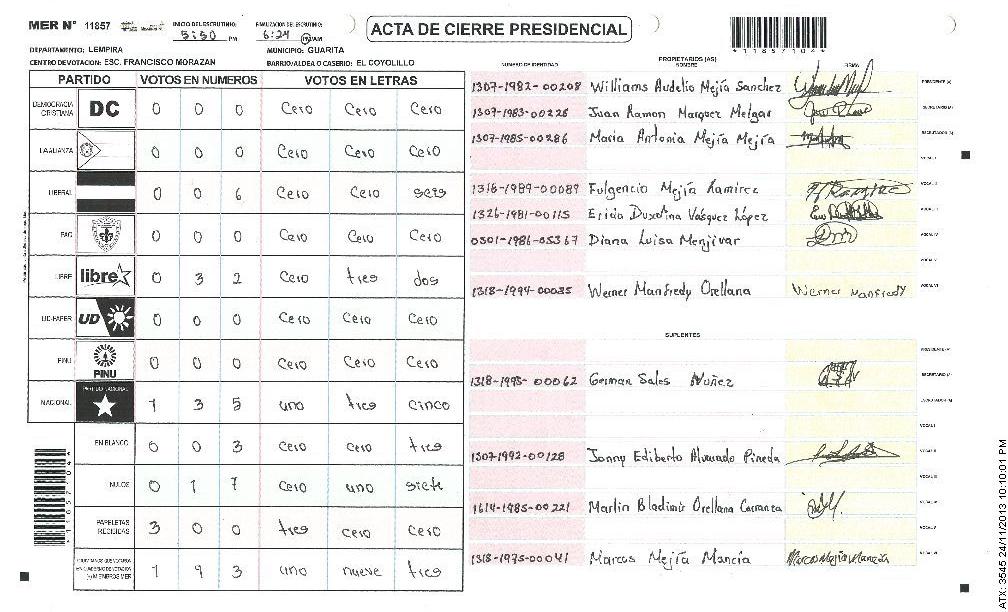 MER N° 11857 INICIO DEL ESCRUTINIO: 5:50 PM FINALIZACION DEL ESCRUTINIO: 6:24 PM/AM ACTA DE CIERRE PRESIDENCIAL
*11857104*
DEPARTAMENTO: LEMPIRA MUNICIPIO: GUARITA
CENTRO DE VOTACION: ESC. FRANCISCO MORAZAN BARRIO/ALDEA O CASERIO: EL COYOLILLO
PARTIDO VOTOS EN NUMEROS VOTOS EN LETRAS
DEMOCRACIA CRISTIANA DC 0 0 0 Cero Cero Cero
LA ALIANZA 0 0 0 Cero Cero Cero
LIBERAL 0 0 6 Cero Cero seis
PAC 0 0 0 Cero Cero Cero
LIBRE libre 0 3 2 Cero tres dos
UD-FAPER UD 0 0 0 Cero Cero Cero
PINU PINU 0 0 0 Cero Cero Cero
NACIONAL PARTIDO NACIONAL 1 3 5 uno tres cinco
EN BLANCO 0 0 3 Cero cero tres
NULOS 0 1 7 cero uno siete
PAPELETAS RECIBIDAS 3 0 0 tres cero cero
1 9 3 uno nueve tres
*11857104*
PROPIETARIOS (AS)
NUMERO DE IDENTIDAD NOMBRE FIRMA
1307-1982-00208 Williams Audelio Mejía Sanchez PRESIDENTE (A)
1307-1983-00226 Juan Ramon Marquez Melgar SECRETARIO (A)
1307-1985-00286 Maria Antonia Mejía Mejía ESCRUTADOR (A)
VOCAL I
1318-1989-00089 Fulgencio Mejía Ramirez VOCAL II
1326-1981-00115 Erida Duxolina Vasquez López VOCAL III
0501-1986-05367 Diana Luisa Menjivar VOCAL IV
VOCAL V
1318-1994-00035 Werner Manfredy Orellana Werner Manfredy VOCAL VI
SUPLENTES
PRESIDENTE (A)
1318-1995-00062 German Sales Nuñez SECRETARIO (A)
ESCRUTADOR (A)
VOCAL I
1307-1992-00128 Jonny Ediberto Alvarado Pineda VOCAL II
VOCAL III
1614-1985-00221 Marlin Bladimir Orellana Carranza VOCAL IV
VOCAL V
1318-1975-00041 Marcos Mejía Mancía Marcos Mejía Mancía VOCAL VI
ATX: 3545 24/11/2013 10:10:01 PM